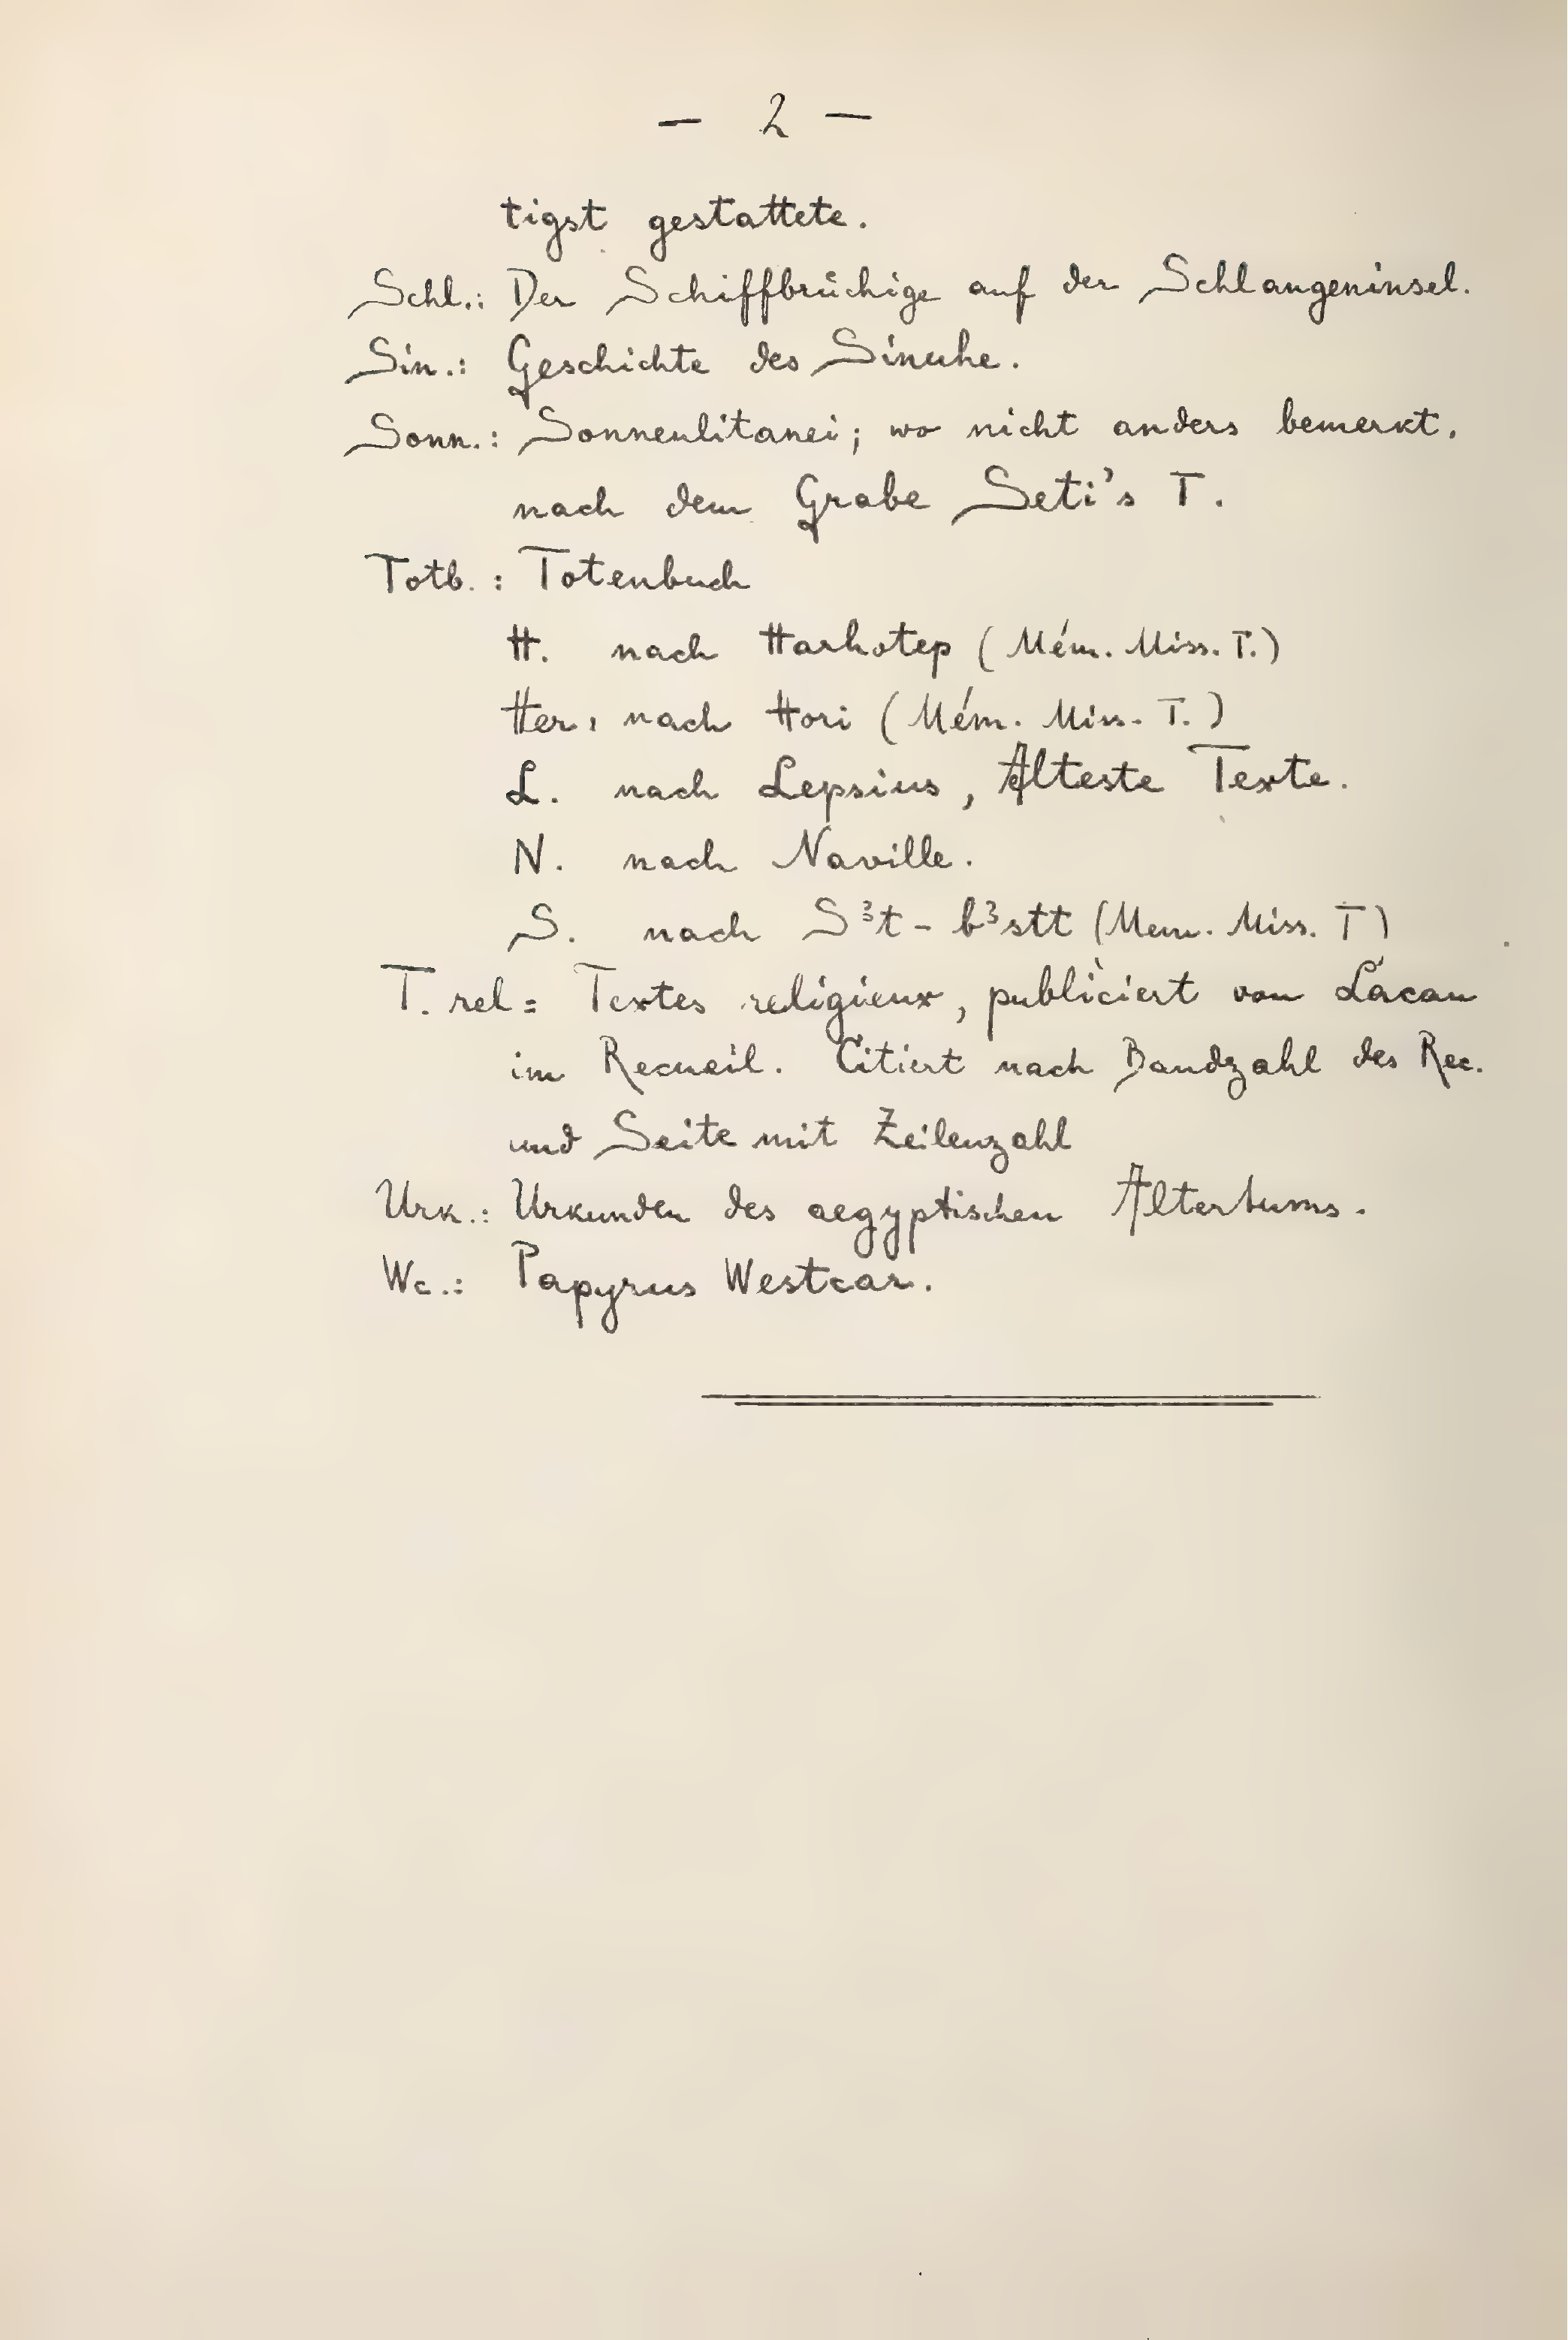 — 2 —
tigst gestattete.
Schl.: Der Schiffbrüchige auf der Schlangeninsel.
Sin.: Geschichte des Sinuhe.
Sonn.: Sonnenlitanei; wo nicht anders bemerkt,
nach dem Grabe Seti's I.
Totb. : Totenbuch
H. nach Harhotep (Mém. Miss. I.)
Her. nach Hori (Mém. Miss. I.)
L. nach Lepsius, Älteste Texte.
N. nach Naville.
S. nach Sꜣt - bꜣstt (Mem. Miss. I)
T. rel = Textes religieux, publiciert von Lacau
im Recueil. Citiert nach Bandzahl des Rec.
und Seite mit Zeilenzahl
Urk.: Urkunden des aegyptischen Altertums.
Wc.: Papyrus Westcar.